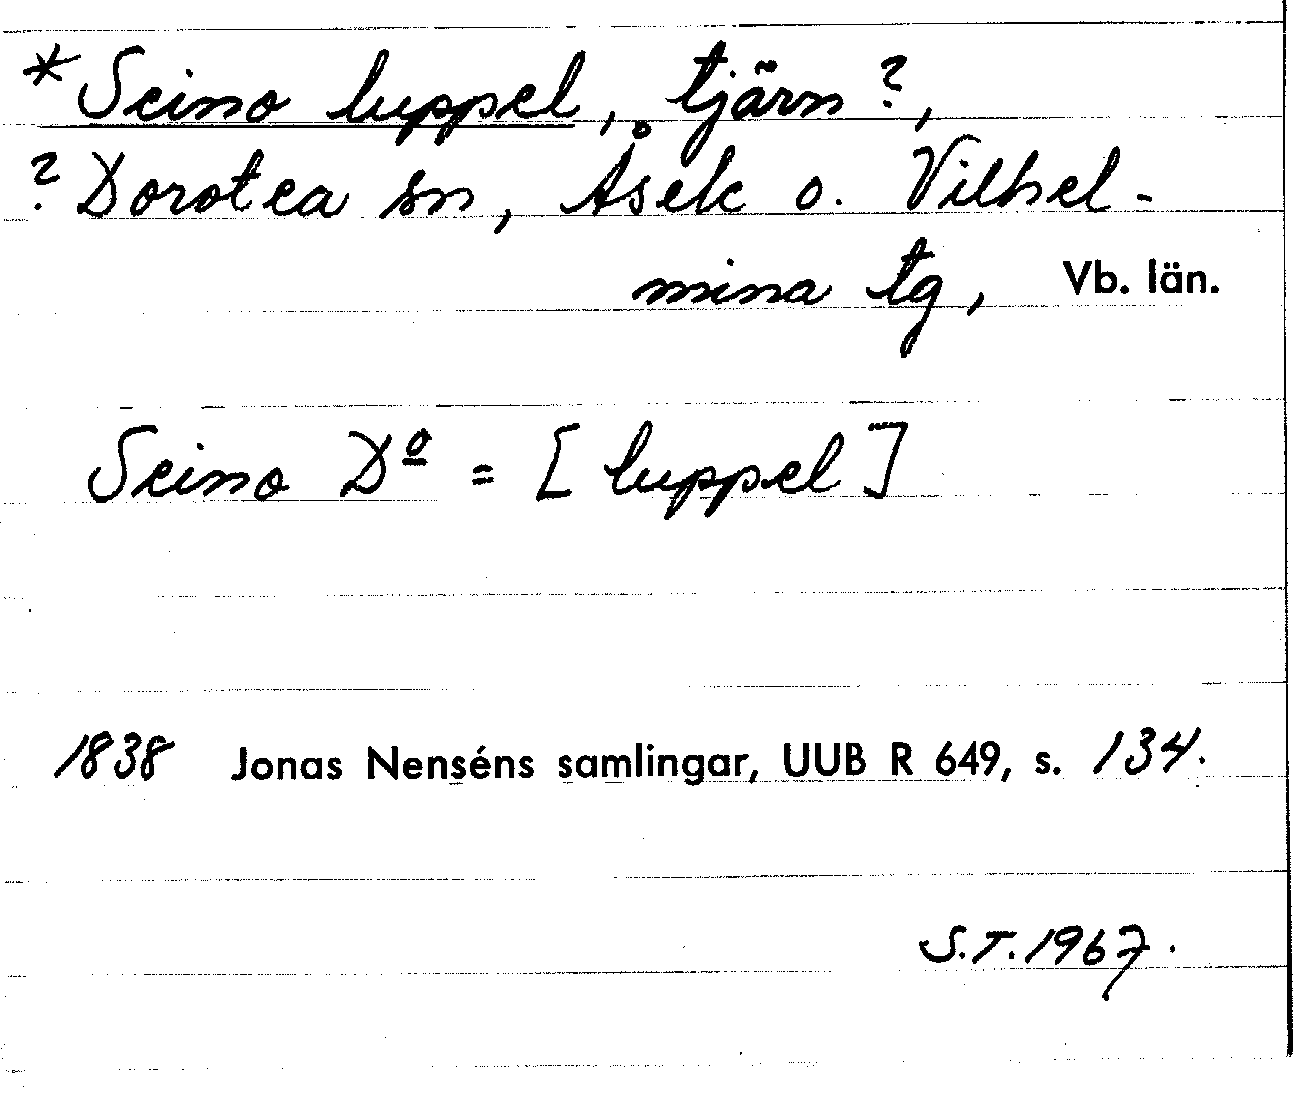 *Seino luppel, tjärn?,
? Dorotea sn, Åsele o. Vilhel-
mina tg, Vb. län.
Seino Dº = [luppel]
1838 Jonas Nenséns samlingar, UUB R 649, s. 134.
S.T. 1967.